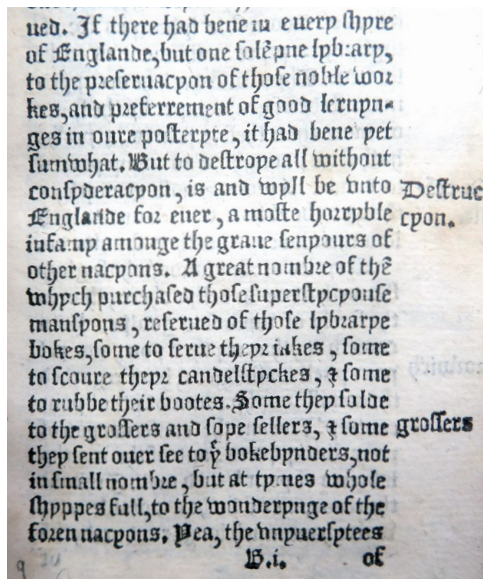 ued. If there had bene in euery shyre
of Englande, but one solẽpne lybrary,
to the preseruacyon of those noble wor
kes, and preferrement of good lernyn-
ges in oure posteryte, it had bene yet
sumwhat. But to destroye all without
consyderacyon, is and wyll be vnto
Destruc
Englande for euer, a moste horryble
cyon.
infamy amonge the graue senyours of
other nacyons. A great nombre of thẽ
whych purchased those superstycyouse
mansyons, reserued of those lybrarye
bokes, some to serue theyr iakes, some
to scoure theyr candelstyckes, & some
to rubbe their bootes. Some they solde
to the grossers and sope sellers, & some
grossers
they sent ouer see to yͤ bokebynders, not
in small nombre, but at tymes whole
shyppes full, to the wonderynge of the
foren nacyons. Yea, the vnyuersytees
B.i. of